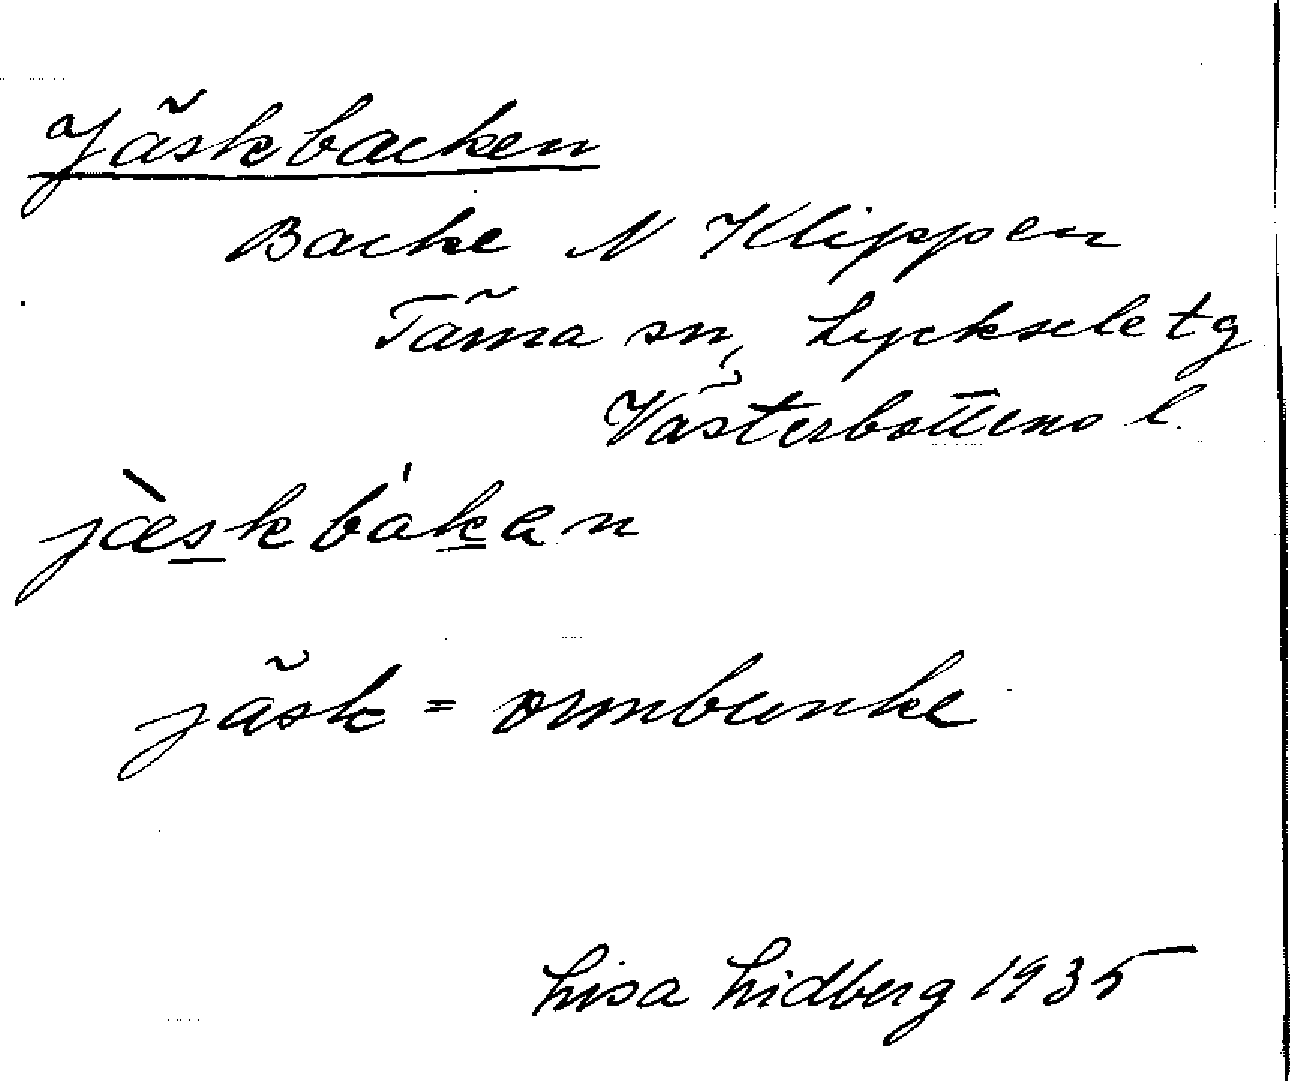 Jäskbacken
Backe N Klippen
Tärna sn, Lycksele tg
Västerbottens l.
jæ̀skbákan
jäsk = ormbunke
Lisa Lidberg 1935